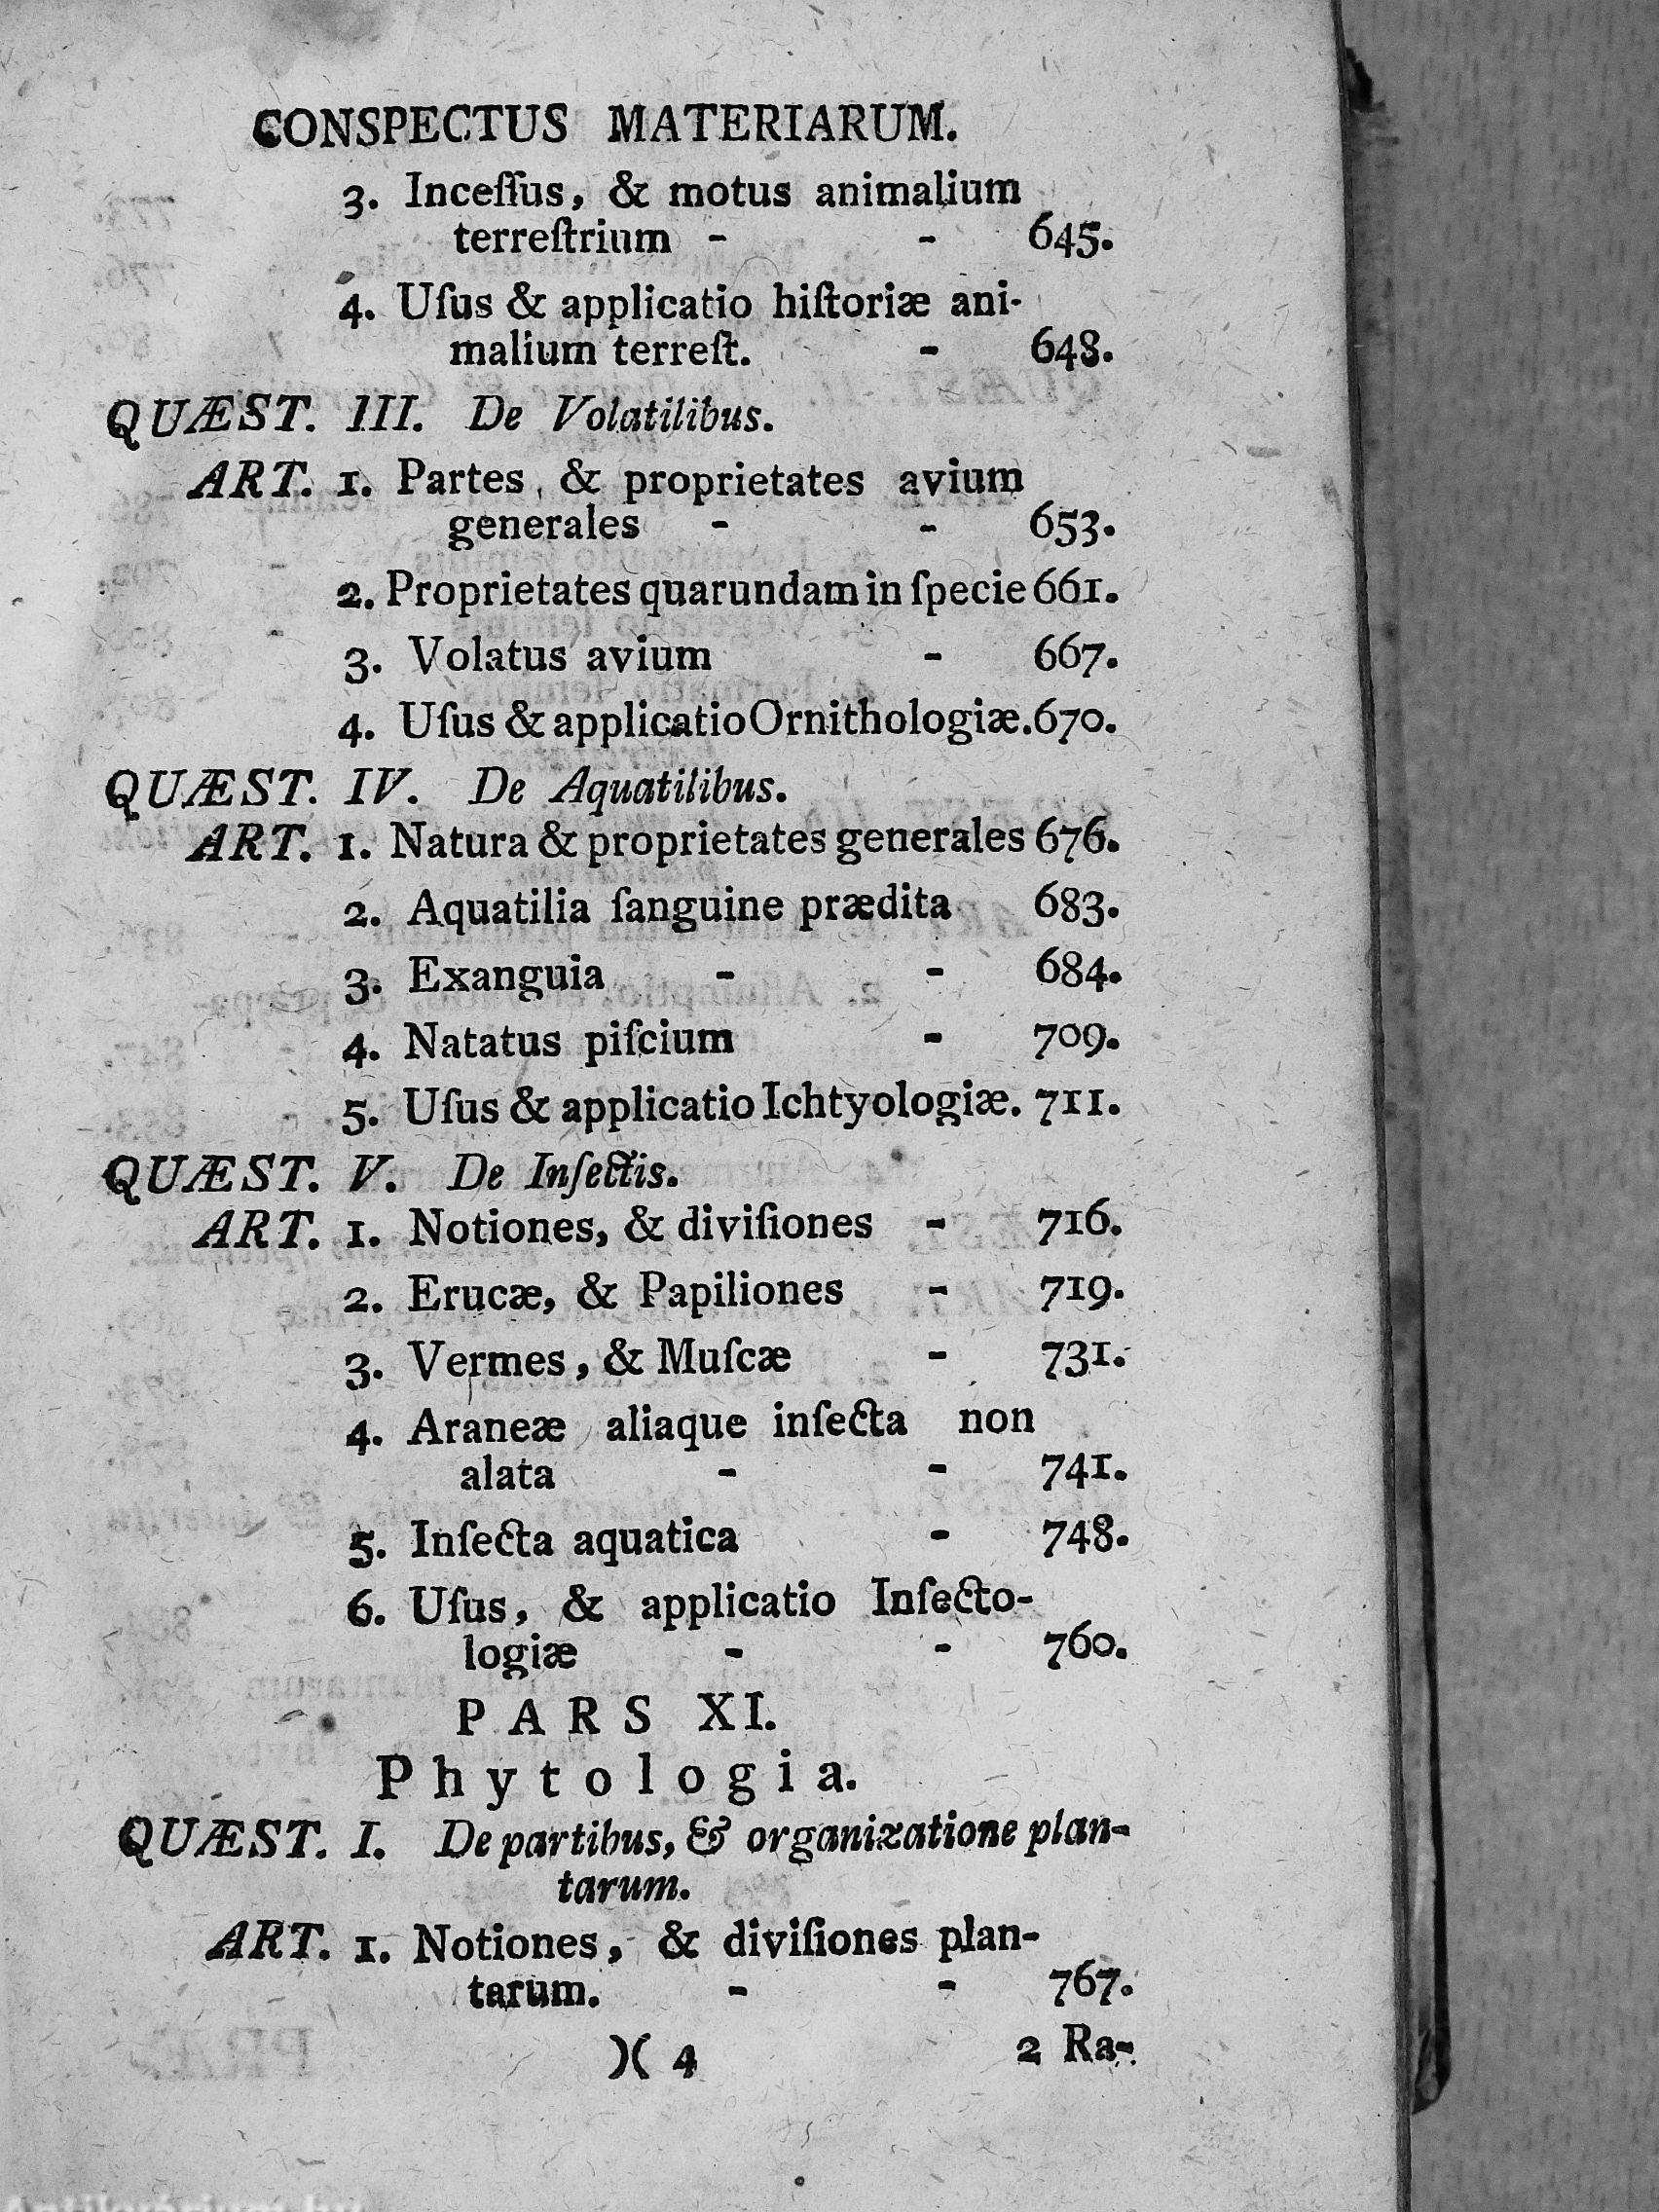 CONSPECTUS MATERIARUM.
3. Inceſſus, & motus animalium
terreſtrium - - 645.
4. Uſus & applicatio hiſtoriæ ani-
malium terreſt. - 648.
QUÆST. III. De Volatilibus.
ART. 1. Partes, & proprietates avium
generales - - 653.
2. Proprietates quarundam in ſpecie 661.
3. Volatus avium - 667.
4. Uſus & applicatio Ornithologiæ. 670.
QUÆST. IV. De Aquatilibus.
ART. 1. Natura & proprietates generales 676.
2. Aquatilia ſanguine prædita 683.
3. Exanguia - - 684.
4. Natatus piſcium - 709.
5. Uſus & applicatio Ichtyologiæ. 711.
QUÆST. V. De Inſectis.
ART. 1. Notiones, & diviſiones - 716.
2. Erucæ, & Papiliones - 719.
3. Vermes, & Muſcæ - 731.
4. Araneæ aliaque inſecta non
alata - - 741.
5. Inſecta aquatica - 748.
6. Uſus, & applicatio Inſecto-
logiæ - - 760.
PARS XI.
Phytologia.
QUÆST. I. De partibus, & organizatione plan-
tarum.
ART. 1. Notiones, & diviſiones plan-
tarum. - - 767.
)( 4 2 Ra-